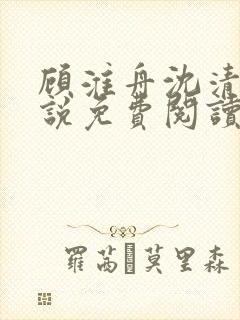 顾淮舟沈清
說免費閱讀
羅茜·莫里森